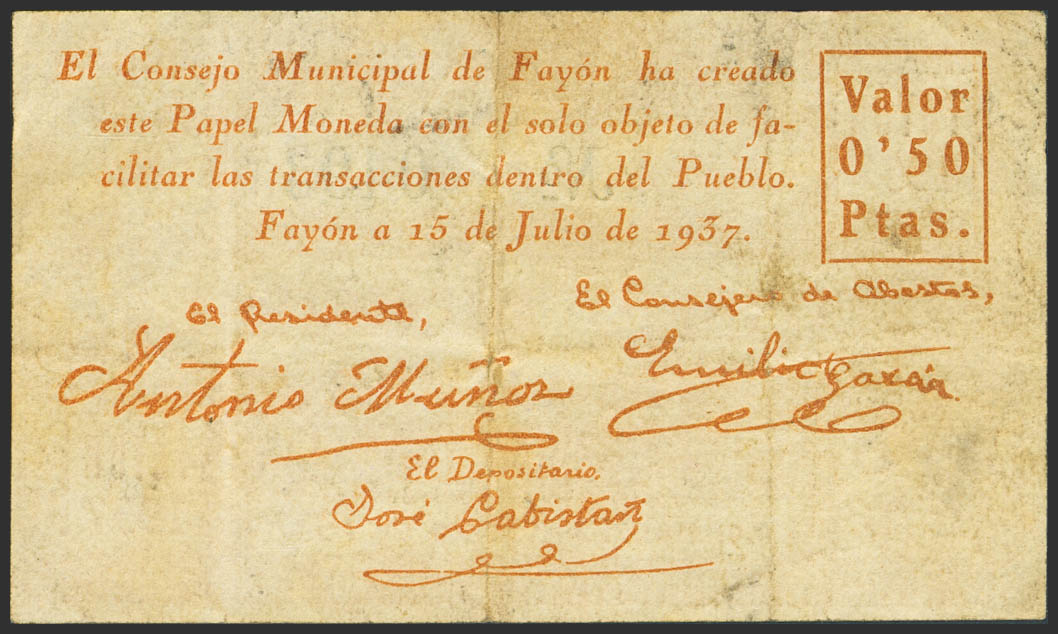 El Consejo Municipal de Fayón ha creado
este Papel Moneda con el solo objeto de fa-
cilitar las transacciones dentro del Pueblo.
Fayón a 15 de Julio de 1937.
Valor
0'50
Ptas.
El Presidente,
Antonio Muñoz
El Consejero de Abastos,
Emilio García
El Depositario,
José